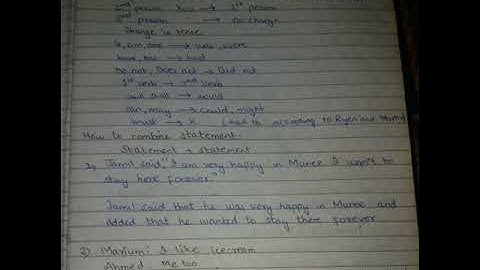 person You → 1st person
3rd person → No change
Change in tense
Is, am, are → was, were
have, has → had
Do not, Does not → Did not
1st verb → 2nd verb
will shall → would
can, may → could, might
must → had to according to
How to combine statement
Statement + statement
Jamil said, "I am very happy in Muree I want to
stay here forever"
Jamil said that he was very happy in Muree and
added that he wanted to stay there forever
2) Marium: I like icecream
Ahmed Me too